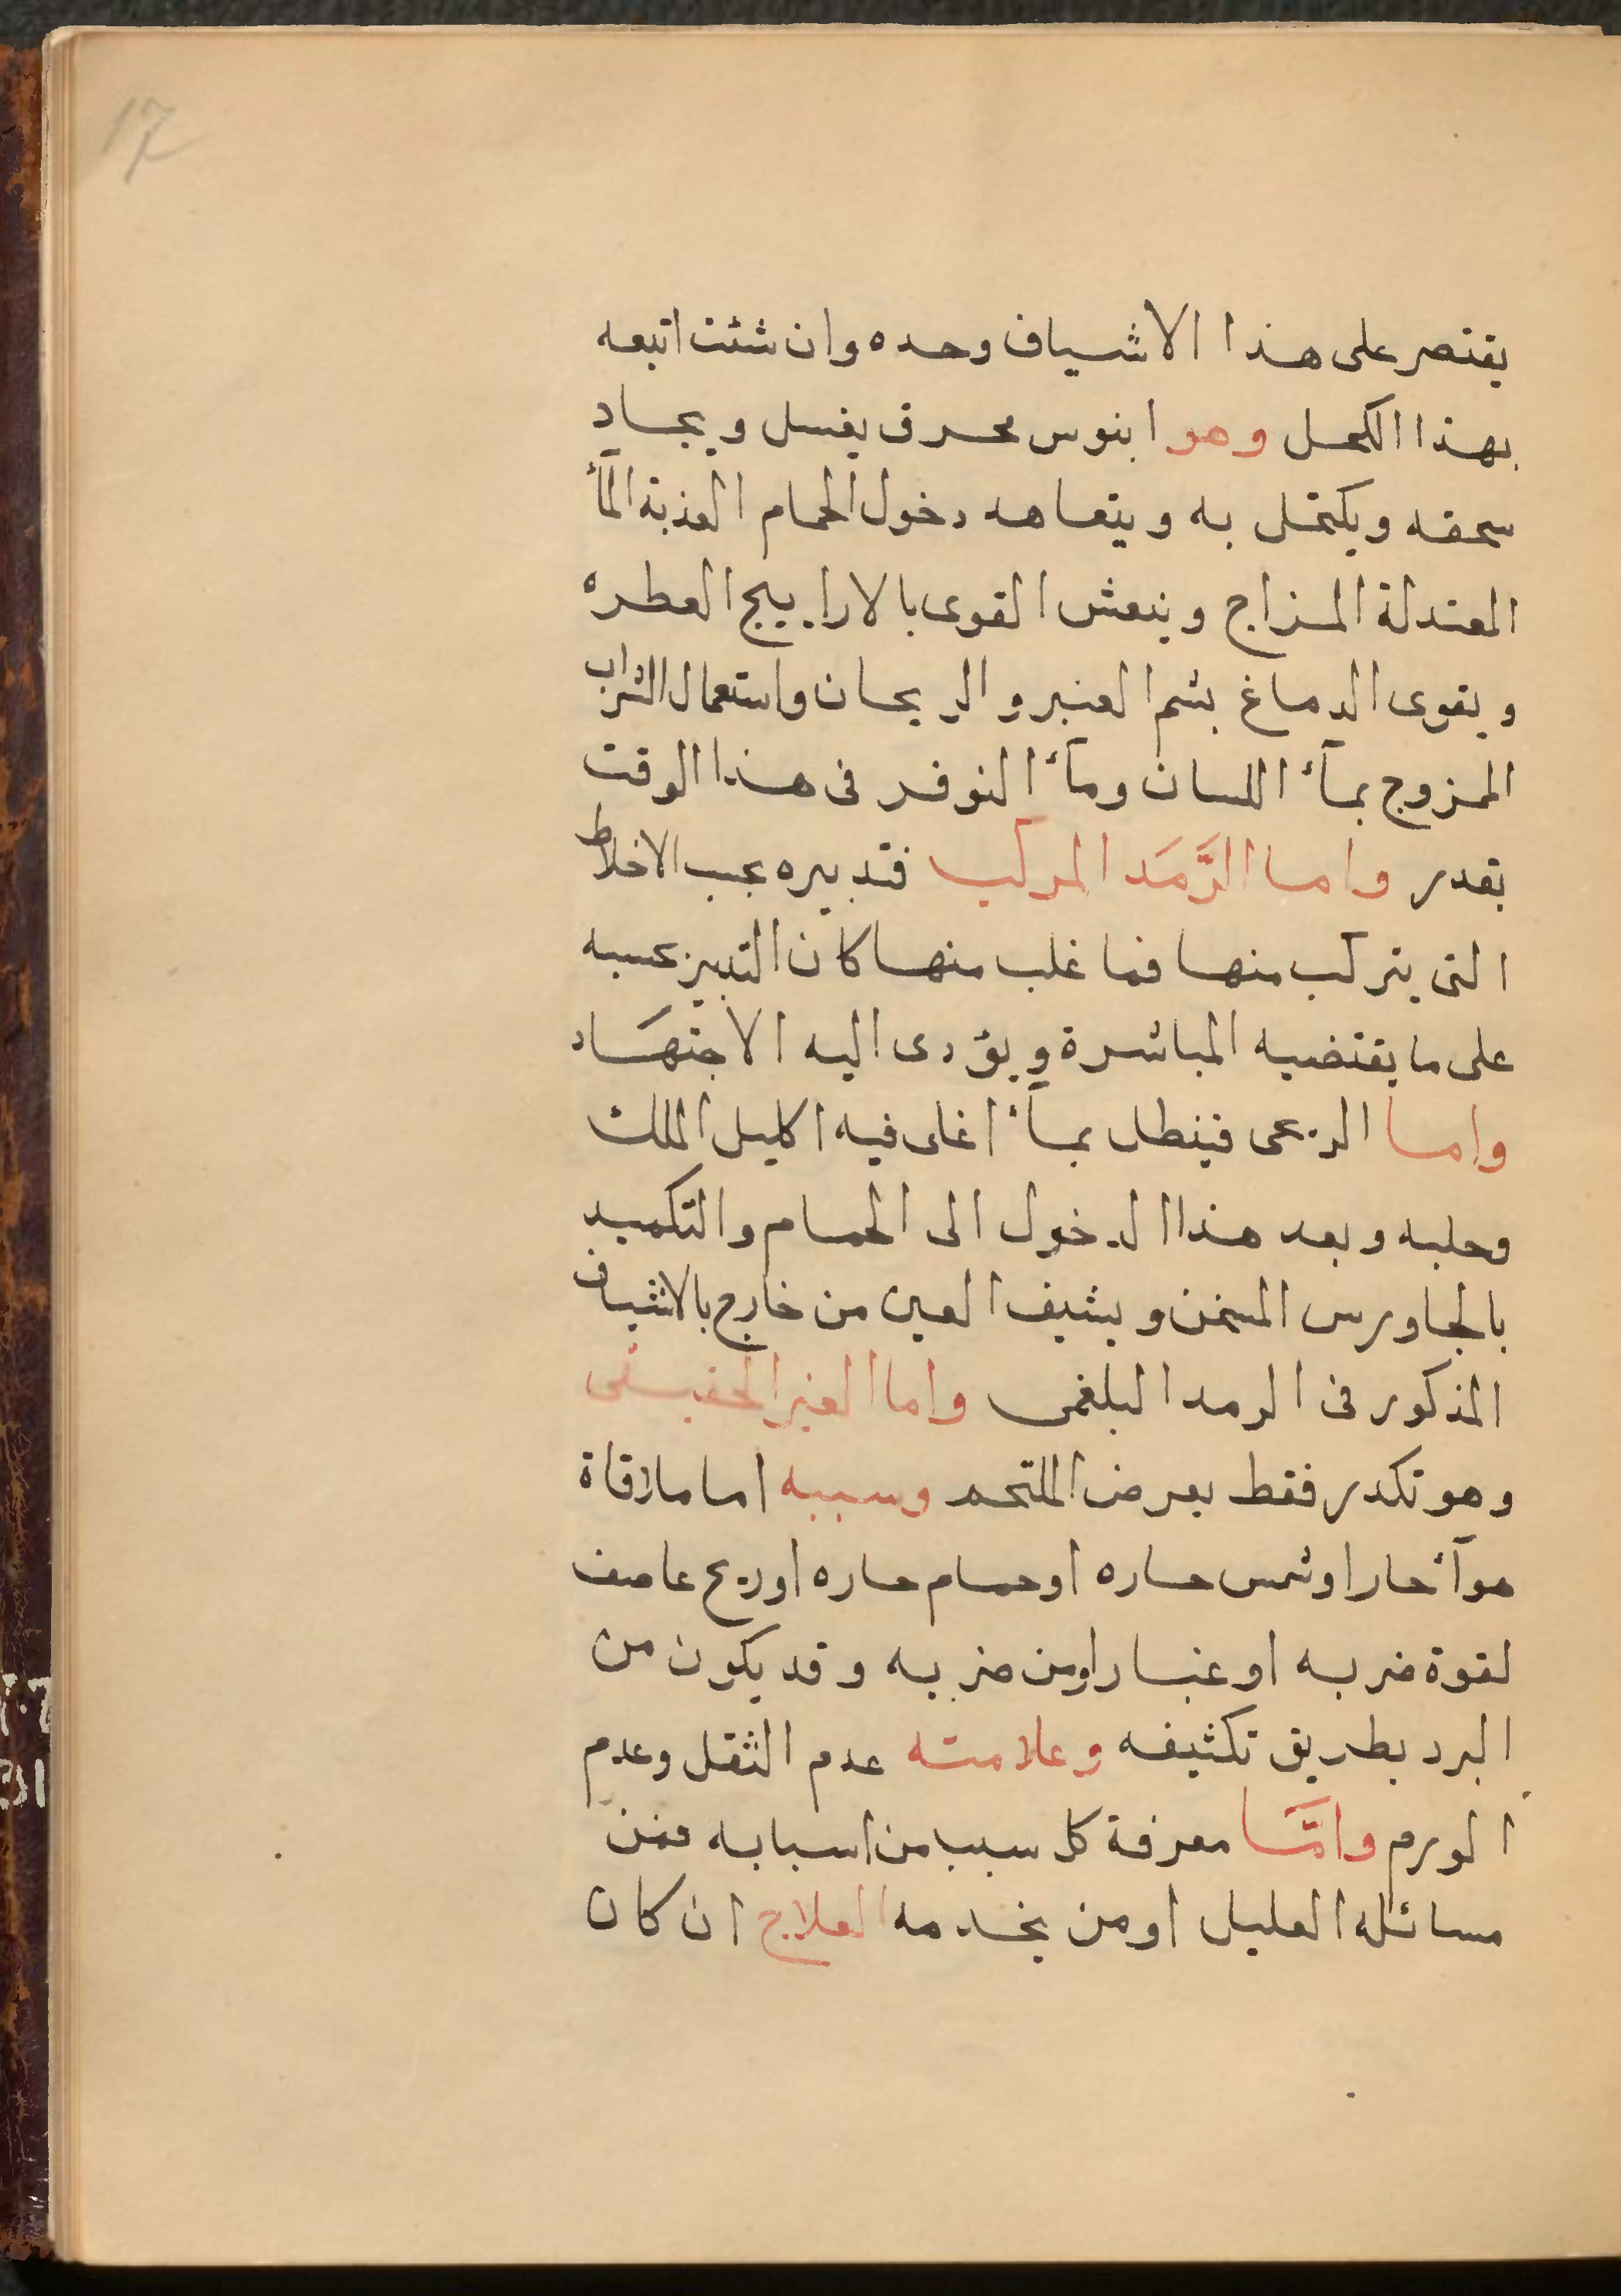 17
يقتصر على هذا الاشياف وحده وان شئت اتبعه
بهذا الكحل وهو ابنوس محرق يغسل ويجاد
سحقه ويكتحل به ويتعاهد دخول الحمام العذبة المآء
المعتدلة المزاج وينعش القوى بالاراييج العطره
ويقوى الدماغ بشم العنبر والريحان واستعمال الشراب
الممزوج بمآء اللسان ومآء النوفر فى هذا الوقت
بقدر واما الرَّمَد المركب فتدبيره بحسب الاخلاط
التى يتركب منها فما غلب منها كان التدبير بحسبه
على ما يقتضيه المباشرة ويؤدى اليه الاجتهَاد
واما الريحى فينطل بمآء اغلى فيه اكليل الملك
وحلبه وبعد هذا الدخول الى الحمام والتكميد
بالجاورس المسخن ويشيف العين من خارج بالاشياف
المذكور فى الرمد البلغمى واما الغير الحقيقى
وهو تكدر فقط يعرض للملتحم وسببه اما ملاقاة
هوآء حار او شمس حاره او حمام حاره او ريح عاصف
لقوة ضربه او غبار او من ضربه وقد يكون من
البرد بطريق تكثيفه وعلامته عدم الثقل وعدم
الورم وامَّا معرفة كل سبب من اسبابه فمن
مسائله العليل او من يخدمه العلاج ان كان